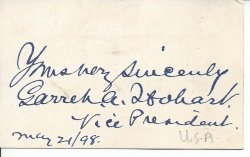 Yours very sincerely
Garret A. Hobart.
Vice President.
May 21/98.
U.S.A.